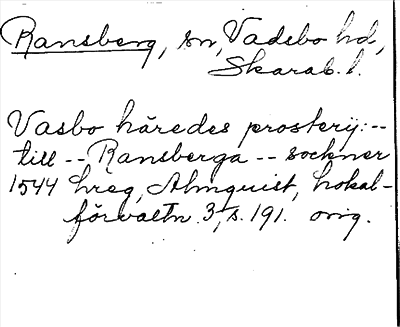 Ransberg, sn, Vadsbo hd,
Skarab. l.
Vasbo häredes prosterij: --
till -- Ransberga -- sockner
1544 hreg, Almquist, Lokal-
förvaltn. 3, s. 191. orig.